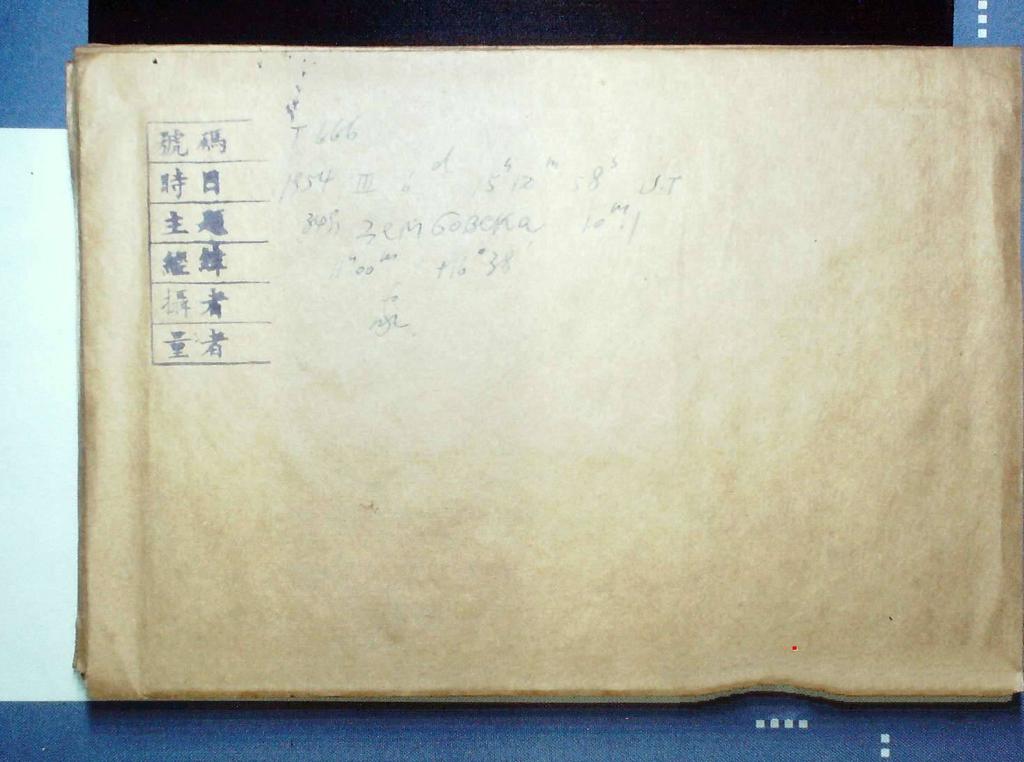 號碼 T 666
時日 1954 III 6d 15h 12m 58s U.T
主題 Dembowska 10m.1
經緯 11h00m +16°38
攝者
量者